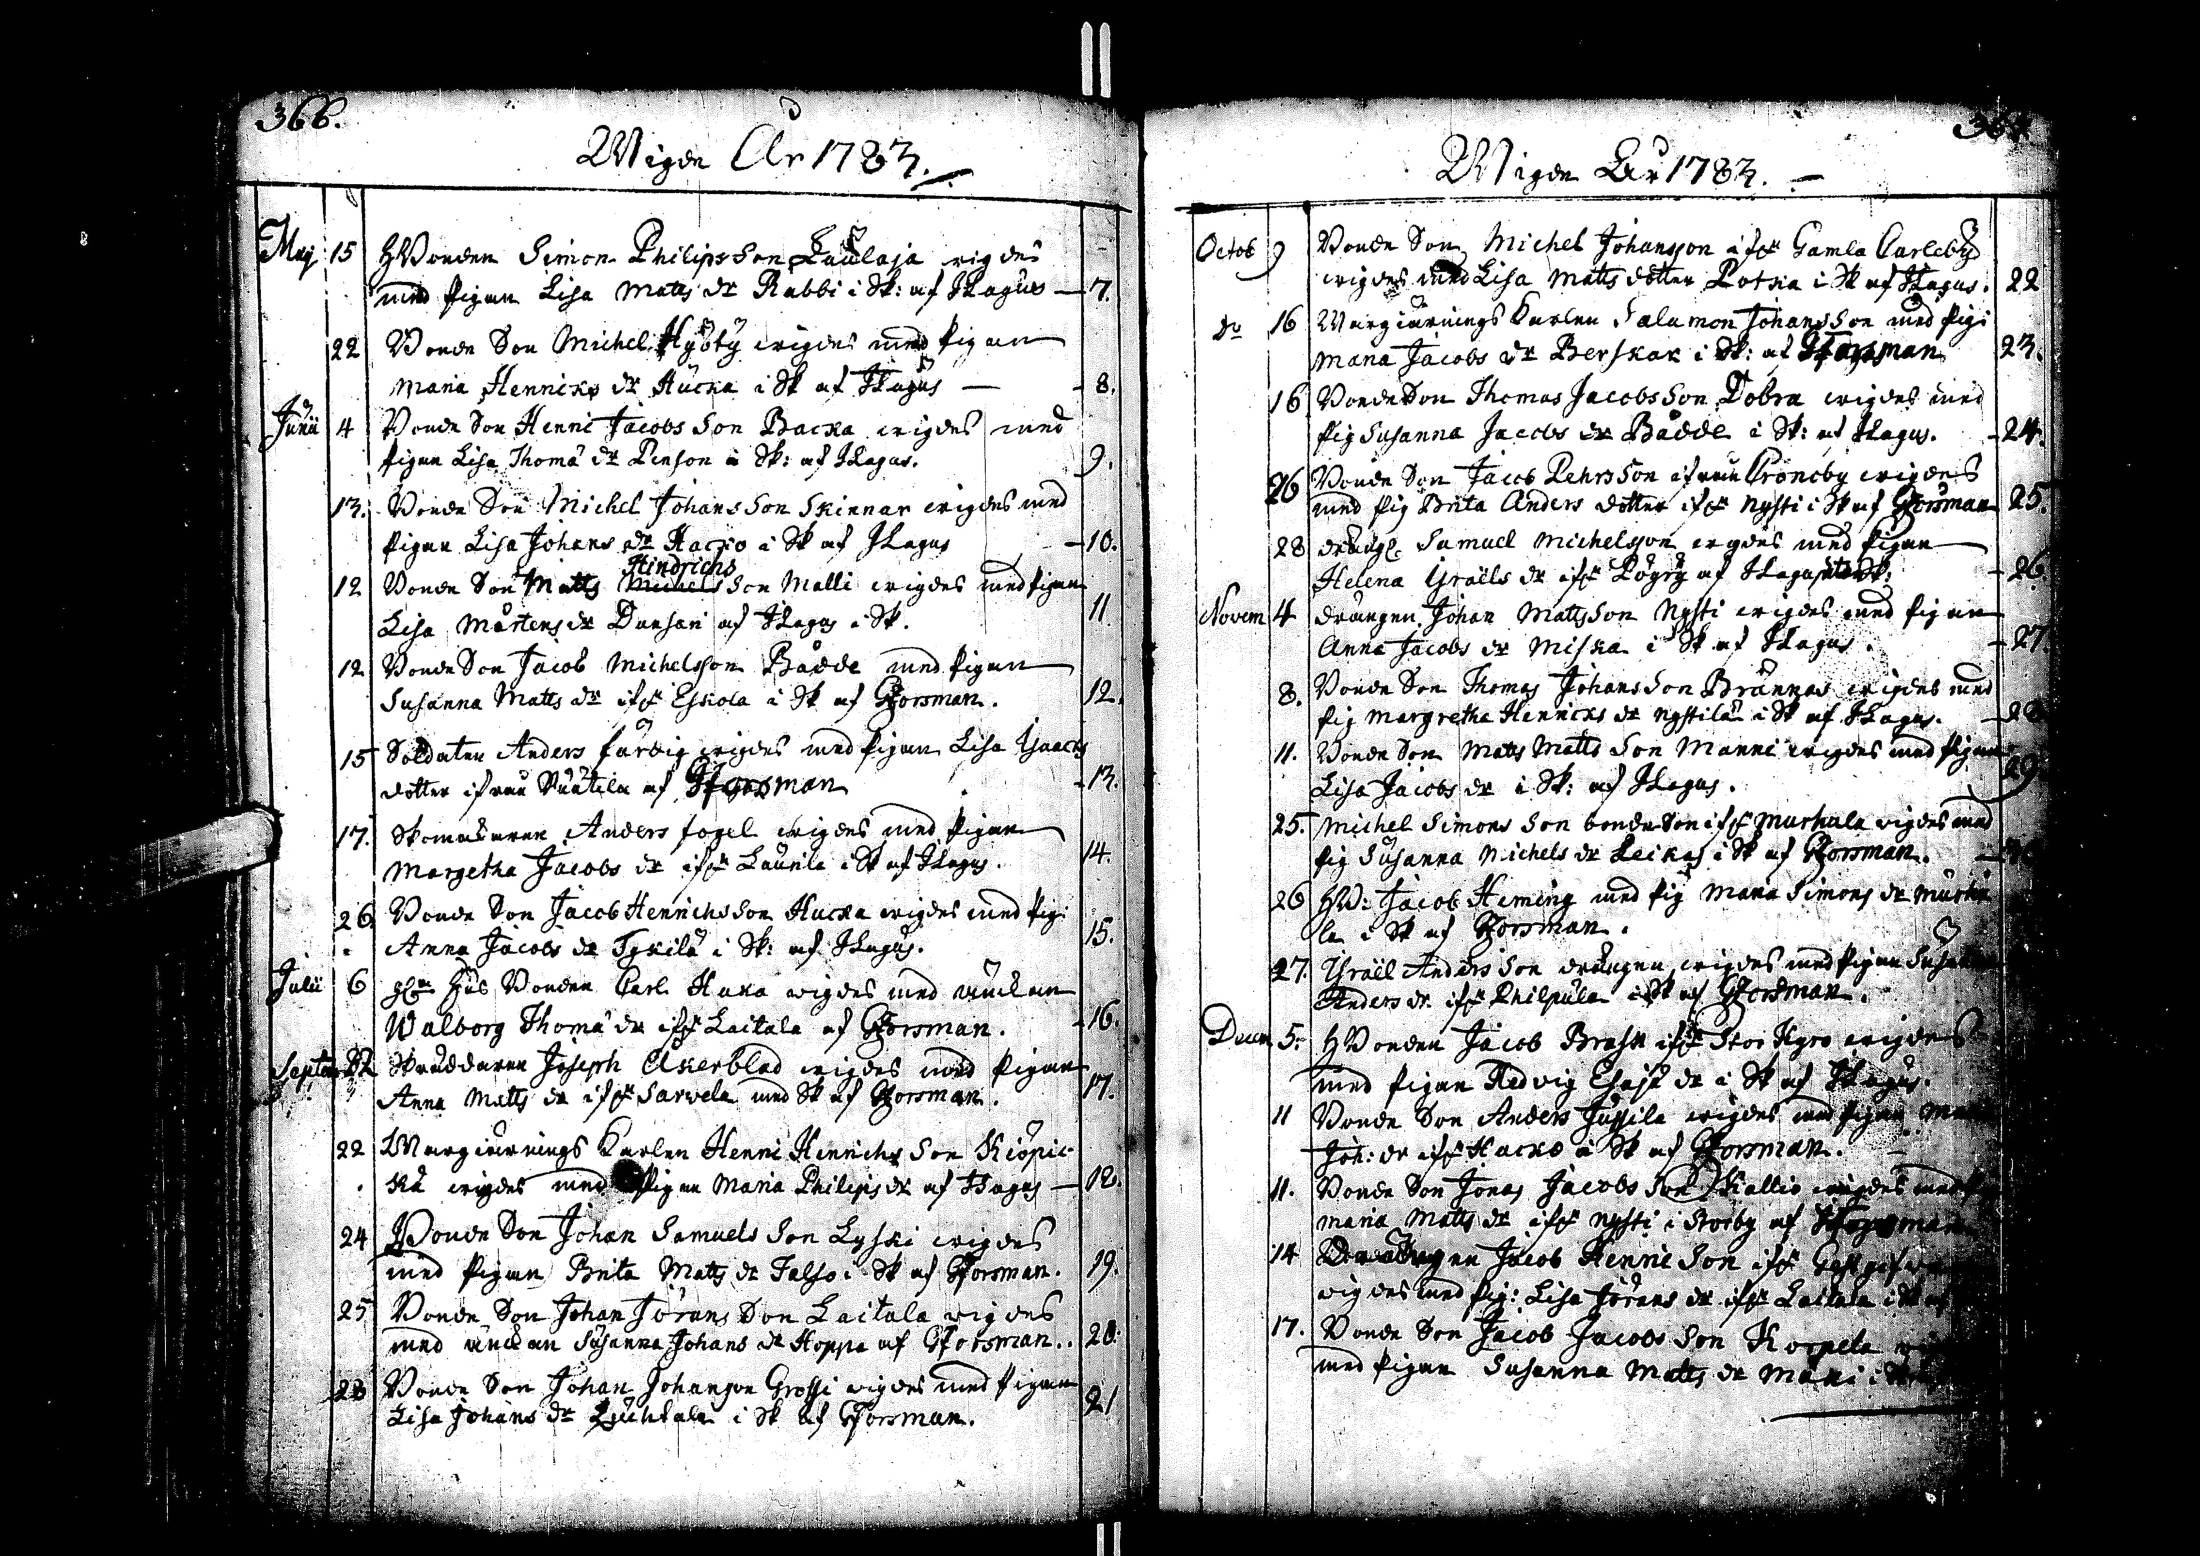 366.
Wigde År 1783.
Maj 15 HBonden Simon Philipsson Laulaja vigdes
med pigan Lisa Matts dr Rabbi i Sk: af HLagus — 7.
22 Bonde Son Michel Hyöty wigdes med pigan
Maria Henricks dr Hucka i Sk af HLagus — 8.
Junii 4 Bonde Son Henric Jacobs Son Backa wigdes med
pigan Lisa Thomæ dr Penson i Sk: af HLagus. 9.
13. Bonde Son Michel Johans Son Skinnar wigdes med
pigan Lisa Johans dr Hacko i Sk af HLagus — 10.
Hindrichs
12 Bonde Son Matts Michels Son Malli wigdes med pigan
Lisa Mårtens dr af HLagus i Sk. 11.
12 Bonde Son Jacob Michelsson Bådde med pigan
Susanna Matts dr ifr Eskola i Sk af GForsman. 12.
15 Soldaten Anders färdig wigdes med pigan Lisa Isaacs
dotter ifrån af GForsman — 13.
17. Skomakaren Anders fogel wigdes med pigan
Margetha Jacobs dr ifr Laurila i Sk af HLagus. 14.
26 Bonde Son Jacob Henrichsson Hucka wigdes med pig:
Anna Jacobs dr Sykilä i Sk: af HLagus. 15.
Julii 6 Bonden Carl Haka wigdes med änckan
Walborg Thomæ dr ifr Laitala af GForsman. — 16.
Septem 22 Skräddaren Joseph Åkerblad wigdes med pigan
Anna Matts dr ifr Sarvela med Sk af GForsman. 17.
22 Wargierings Karlen Henric Henrichs Son Kiöpic-
kä wigdes med pigan Maria Philips dr af HLagus — 18.
24 Bonde Son Johan Samuels Son Lyski wigdes
med pigan Brita Matts dr Talso i Sk af GForsman. 19.
25 Bonde Son Johan Jörans Son Laitala vigdes
med änckan Susanna Johans dr Hoppa af GForsman.. 20.
28 Bonde Son Johan Johansson Grossi wigdes med pigan
Lisa Johans dr i Sk af GForsman. 21
367.
Wigde År 1783. —
Octob 9 Bonde Son Michel Johansson ifr Gamla Carleby
wigdes med Lisa Matts dotter Potka i Sk af HLagus. 22
do 16 Wargierings Karlen Salamon Johans Son med pig:
Maria Jacobs dr i Sk: af GForsman 23.
16 Bonde Son Thomas Jacobs Son Dobra wigdes med
pig Susanna Jacobs dr Bådde i Sk: af HLagus. — 24.
26 Bonde Son Jacob Pehrs Son ifrån Cronoby wigdes
med pig Brita Anders dotter ifr Nysti i Sk af GForsman 25.
28 dräng: Samuel Michelsson wigdes med pigan
Helena Israëls dr ifr af HLagus — 26.
Novem 4 drängen Johan Mattsson Nysti wigdes med pigan
Anna Jacobs dr Miska i Sk af HLagus. — 27.
8. Bonde Son Thomas Johans Son Brännas wigdes med
pig Margretha Henricks dr Nystilä i Sk af HLagus. — 28
11. Bonde Son Mats Matts Son Manni wigdes med pigan
Lisa Jacobs dr i Sk: af HLagus. 29
25. Michel Simons Son bonde Son ifr Murhula vigdes med
pig Susanna Michels dr Leikas i Sk af GForsman.
26 HB: Jacob Heming med pig Maria Simons dr Murhu
la i Sk af GForsman.
27. Israël Anders Son drängen wigdes med pigan
Anders dr ifr Philpula i Sk af GForsman.
Decem 5. HBonden Jacob Brask ifr Stor Kyro wigdes
med pigan Hedvig dr i Sk af HLagus.
11 Bonde Son Anders Jussila wigdes med pigan
Joh: dr ifr Hacko i Sk af GForsman.
11. Bonde Son Jonas Jacobs Son Kallio wigdes med
Maria Matts dr ifr Nysti i Storby af
14 Drängen Jacob Henric Son ifr
vigdes med pig: Lisa Jörans dr ifr Laitala i Sk af
17. Bonde Son Jacob Jacobs Son Korpela
med pigan Susanna Matts dr Maki i Sk